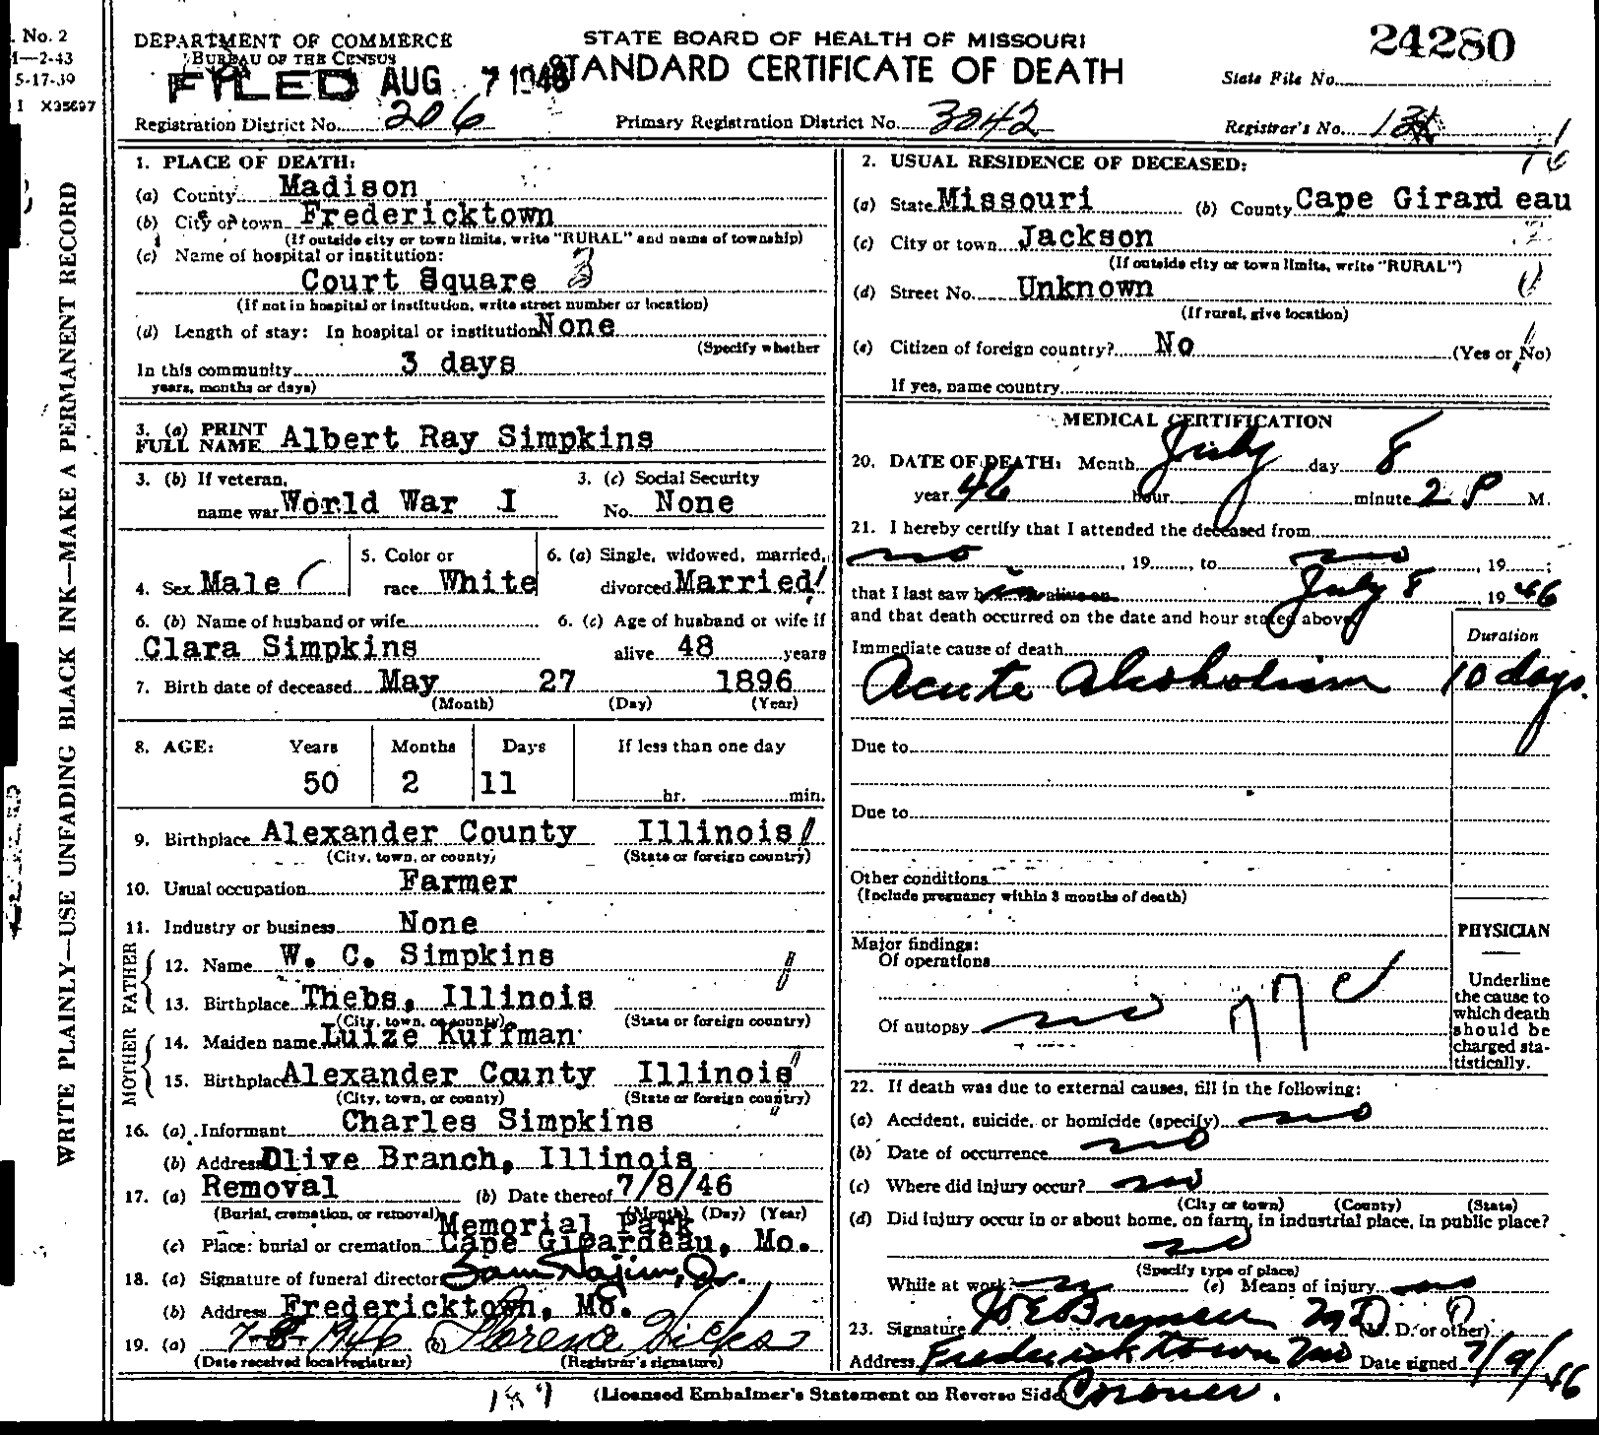 . No. 2
1—2-43
5-17-39
I X35697
WRITE PLAINLY—USE UNFADING BLACK INK—MAKE A PERMANENT RECORD
DEPARTMENT OF COMMERCE
BUREAU OF THE CENSUS
FILED AUG 7 1946
STATE BOARD OF HEALTH OF MISSOURI
STANDARD CERTIFICATE OF DEATH
24280
State File No.
Registration District No. 206
Primary Registration District No. 3042
Registrar's No.
1. PLACE OF DEATH:
(a) County Madison
(b) City or town Fredericktown
(If outside city or town limits, write "RURAL" and name of township)
(c) Name of hospital or institution:
Court Square 3
(If not in hospital or institution, write street number or location)
(d) Length of stay: In hospital or institution None
(Specify whether
In this community 3 days
years, months or days)
2. USUAL RESIDENCE OF DECEASED:
(a) State Missouri (b) County Cape Girardeau
(c) City or town Jackson
(If outside city or town limits, write "RURAL")
(d) Street No. Unknown
(If rural, give location)
(e) Citizen of foreign country? No (Yes or No)
If yes, name country
3. (a) PRINT FULL NAME Albert Ray Simpkins
3. (b) If veteran, name war World War I
3. (c) Social Security No. None
4. Sex Male
5. Color or race White
6. (a) Single, widowed, married, divorced Married
6. (b) Name of husband or wife
Clara Simpkins
6. (c) Age of husband or wife if alive 48 years
7. Birth date of deceased May 27 1896
(Month) (Day) (Year)
8. AGE: Years Months Days If less than one day
50 2 11 hr. min.
9. Birthplace Alexander County Illinois
(City, town, or county) (State or foreign country)
10. Usual occupation Farmer
11. Industry or business None
FATHER
12. Name W. C. Simpkins
13. Birthplace Thebs, Illinois
(City, town, or county) (State or foreign country)
MOTHER
14. Maiden name Luize Kuffman
15. Birthplace Alexander County Illinois
(City, town, or county) (State or foreign country)
16. (a) Informant Charles Simpkins
(b) Address Olive Branch, Illinois
17. (a) Removal (b) Date thereof 7/8/46
(Burial, cremation, or removal) (Month) (Day) (Year)
Memorial Park
(c) Place: burial or cremation Cape Girardeau, Mo.
18. (a) Signature of funeral director Sam Najim, Jr.
(b) Address Fredericktown, Mo.
19. (a) 7-8-1946 (b) Florence Hicks
(Date received local registrar) (Registrar's signature)
MEDICAL CERTIFICATION
20. DATE OF DEATH: Month July day 8
year 46 hour minute 2 P M.
21. I hereby certify that I attended the deceased from
no , 19 , to no , 19 ;
that I last saw h alive on July 8 , 19 46
and that death occurred on the date and hour stated above.
Duration
Immediate cause of death
Acute Alcoholism 10 days.
Due to
Due to
Other conditions
(Include pregnancy within 3 months of death)
Major findings:
Of operations
Of autopsy no
PHYSICIAN
Underline
the cause to
which death
should be
charged sta-
tistically.
22. If death was due to external causes, fill in the following:
(a) Accident, suicide, or homicide (specify) no
(b) Date of occurrence no
(c) Where did injury occur? no
(City or town) (County) (State)
(d) Did injury occur in or about home, on farm, in industrial place, in public place?
no
(Specify type of place)
While at work? no (e) Means of injury no
23. Signature M D (M. D. or other)
Address Fredericktown Mo Date signed 7/9/46
(Licensed Embalmer's Statement on Reverse Side) Coroner.